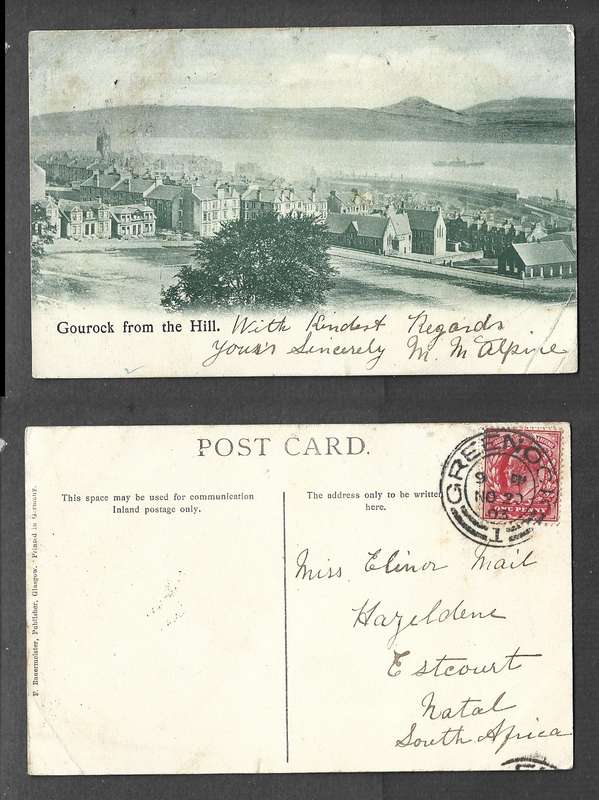 Gourock from the Hill. With Kindest Regards
Yours Sincerely M. McAlpine
POST CARD.
This space may be used for communication
Inland postage only.
The address only to be written
here.
GREENOCK
NO 20
ONE PENNY
Miss Elinor Mail
Hazeldene
Estcourt
Natal
South Africa
F. Bauermeister, Publisher, Glasgow. Printed in Germany.